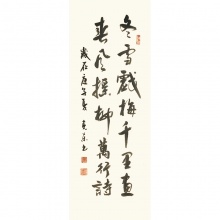 冬雪戲梅千里畫
春風揉柳萬行詩
歲在庚午夏